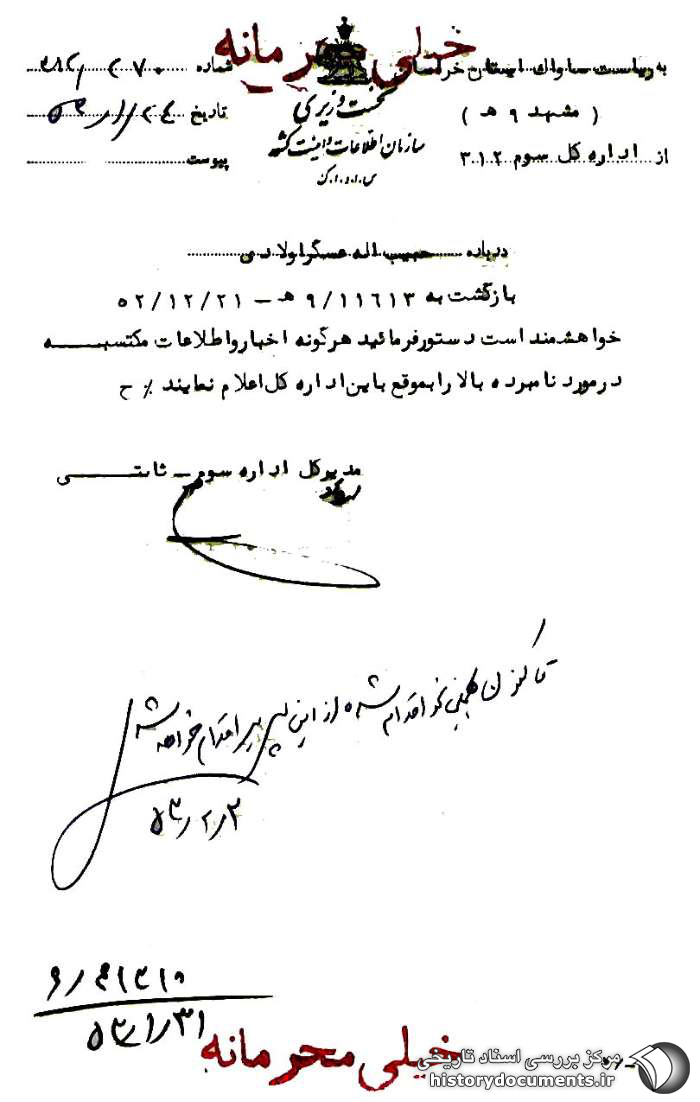 خیلی محرمانه
به ریاست ساواك استان خراسان
( مشهد ۹ هـ )
از اداره كل سوم ۳۰۱۲
نخست وزیری
سازمان اطلاعات و امنیت کشور
س.ا.و.ا.ك
شماره
تاریخ
پیوست
درباره حبیب اله عسگراولادی
بازگشت به ۹/۱۱۶۱۳ هـ – ۵۲/۱۲/۲۱
خواهشمند است دستورفرمائید هرگونه اخبارواطلاعات مکتسبه
درمورد نامبرده بالا رابموقع باین اداره کل اعلام نمایند ٪ ح
مدیرکل اداره سوم – ثابتی
تا کنون همینطور اقدام شده از این پس نیز اقدام خواهد شد
۵۳/۲/۲
۵۳/۱/۳۱
خیلی محرمانه
مرکز بررسی اسناد تاریخی
historydocuments.ir